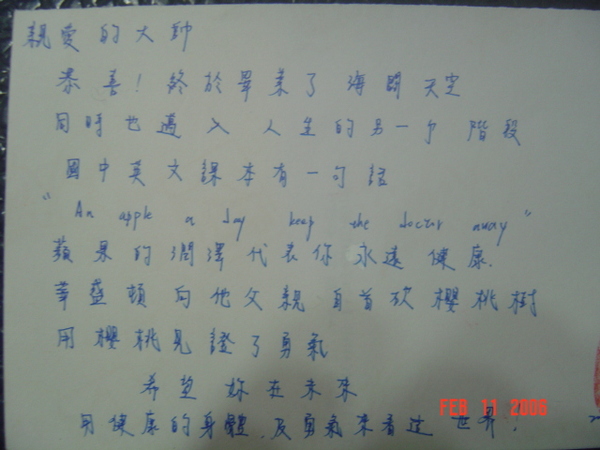 親愛的大帥
恭喜! 終於畢業了 海闊天空
同時也邁入 人生的另一个 階段
國中英文課本有一句話
"An apple a day keep the doctor away"
蘋果的潤澤代表你永遠健康.
華盛頓向他父親自首砍櫻桃樹
用櫻桃見證了勇氣
希望妳在未來
用健康的身體,及勇氣來看这世界.
FEB 11 2006